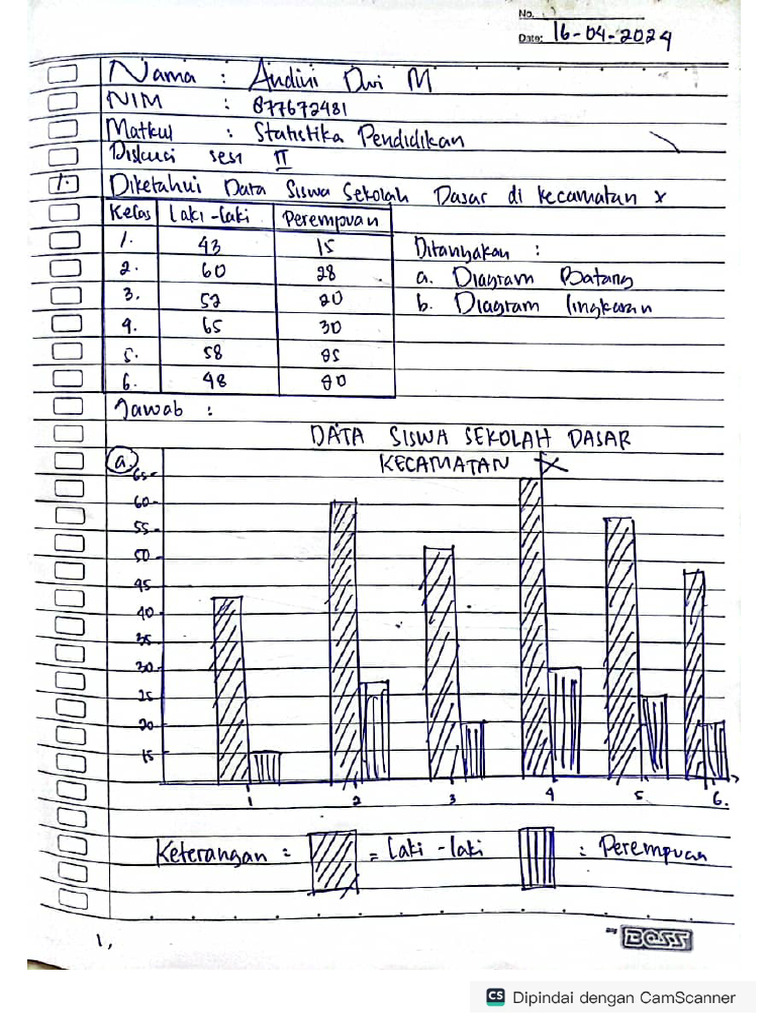 No.
Date: 16-04-2024
Nama : Andini Dwi M
NIM : 877672481
Matkul : Statistika Pendidikan
Diskusi sesi II
1. Diketahui Data Siswa Sekolah Dasar di kecamatan x
Kelas Laki-laki Perempuan
1. 43 15
2. 60 28
3. 52 20
4. 65 30
5. 58 25
6. 48 20
Ditanyakan :
a. Diagram Batang
b. Diagram lingkaran
Jawab :
DATA SISWA SEKOLAH DASAR
KECAMATAN X
a.
65
60
55
50
45
40
35
30
25
20
15
1 2 3 4 5 6.
Keterangan : = Laki-laki : Perempuan
1,
BOSS
CS Dipindai dengan CamScanner